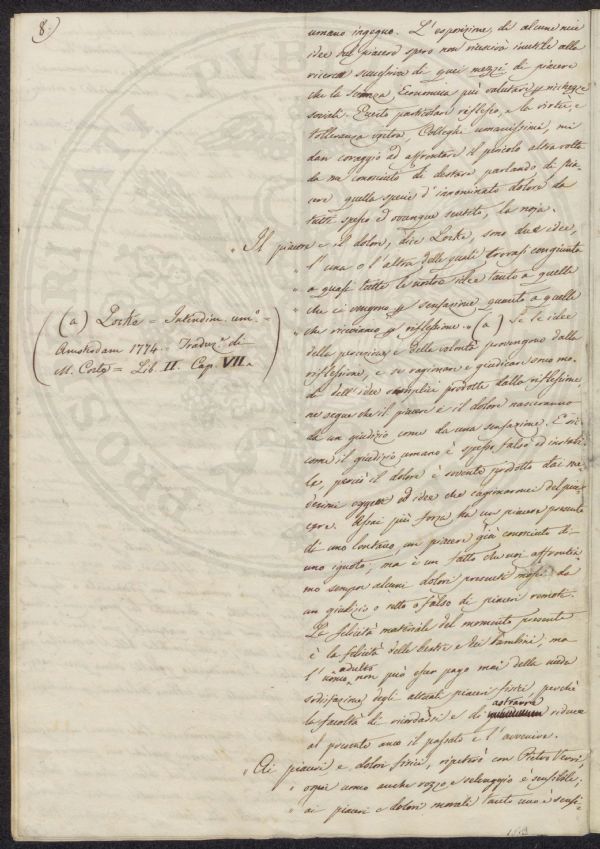 8.)
umano ingegno. L'esposizione di alcune mie
idee sul piacere spero non riescirà inutile alla
ricerca successiva di quei mezzi di piacere
che la scienza Economica può valutare p ricchezze
sociali. Questo particolare riflesso, e la virtù, e
tolleranza vostra, Colleghi umanissimi, mi
dan coraggio ad affrontare il pericolo altra volta
da me conosciuto di destare parlando di pia-
cere quella specie d'innominato dolore da
tutti spesso ed ovunque sentito, la noja.
" Il piacere e il dolore, dice Locke, sono due idee,
" l'una o l'altra delle quali trovasi congiunta
" a quasi tutte le nostre idee tanto a quelle
" che ci vengono p sensazione quanto a quelle
" che riceviamo p riflessione. " (a) Se le idee
della percezione e della volontà provengono dalla
riflessione, e se ragionare e giudicare sono mo-
di dell'idee semplici prodotte dalla riflessione
ne segue che il piacere e il dolore nasceranno
da un giudizio come da una sensazione. E sic-
come il giudizio umano è spesso falso ed instabi-
le, perciò il dolore è sovente prodotto dai me-
desimi oggetti ed idee che cagionarono del pia-
cere. Assai più forza ha un piacere presente
di uno lontano, un piacere già conosciuto di
uno ignoto; ma è un fatto che noi affrontia-
mo sempre alcuni dolori presenti mossi da
un giudizio o retto o falso di piaceri remoti.
La felicità materiale del momento presente
è la felicità delle bestie e dei bambini, ma
l'uomo adulto non può esser pago mai della nuda
sodisfazione degli attuali piaceri fisici, perché
la facoltà di ricordarsi e di astrarre riduce
al presente anco il passato e l'avvenire.
" Ai piaceri e dolori fisici, ripeterò con Pietro Verri,
" ogni uomo anche rozzo e selvaggio è sensibile;
" ai piaceri e dolori morali tanto uno è sensi-
(a) Locke = Intendim. um.º =
Amsterdam 1774. Traduz.e di
M. Coste = Lib. II. Cap. VII.